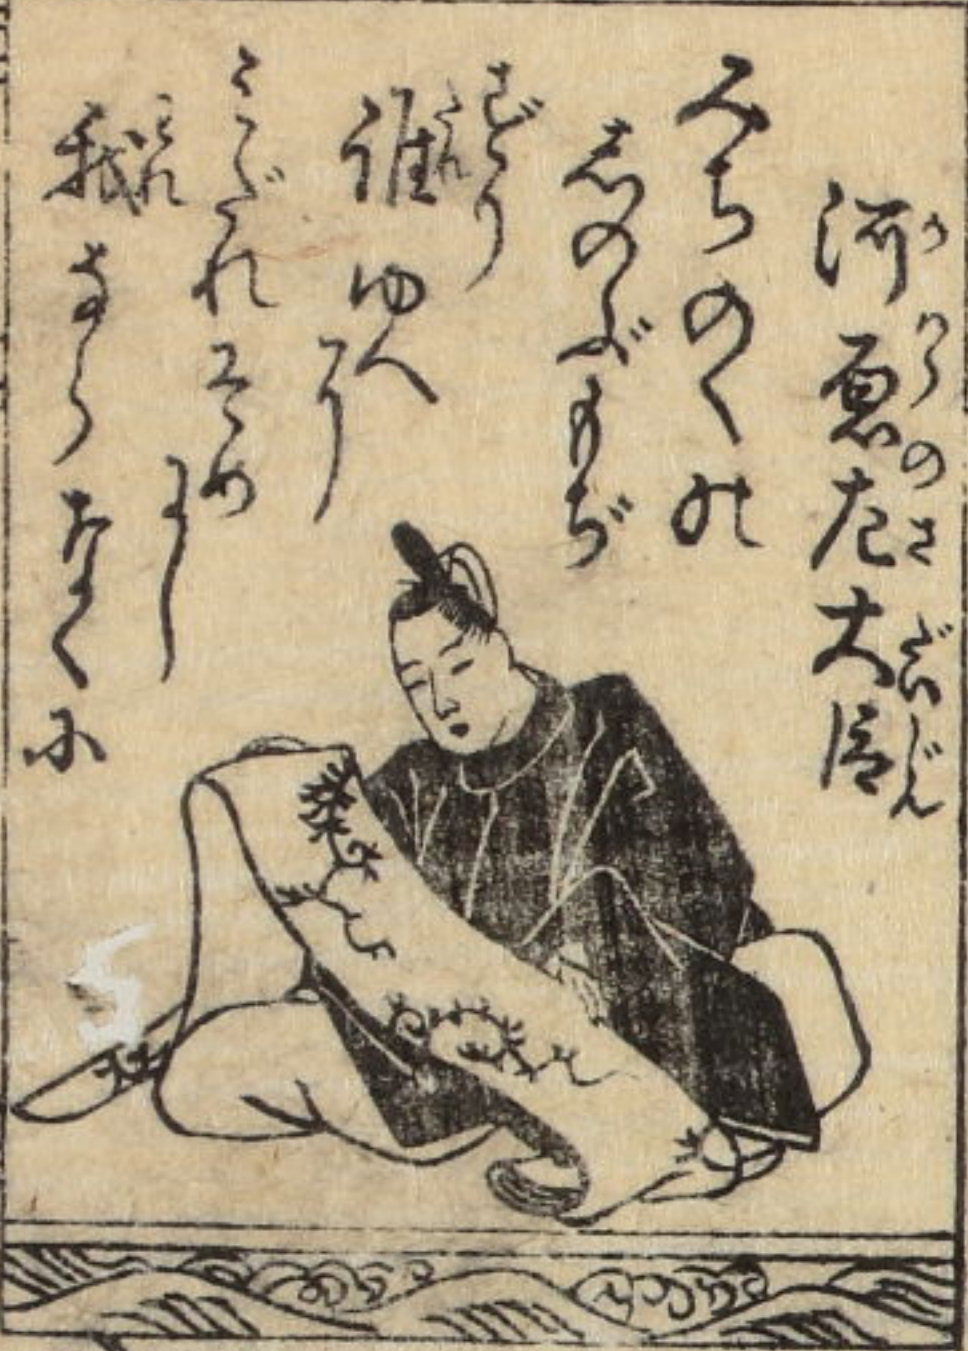 河原左大臣
かわらのさだいじん
みちのくの
しのぶもぢ
ずり
誰ゆへ
たれ
に
みだれそめ
にし
我ならなくに
われ